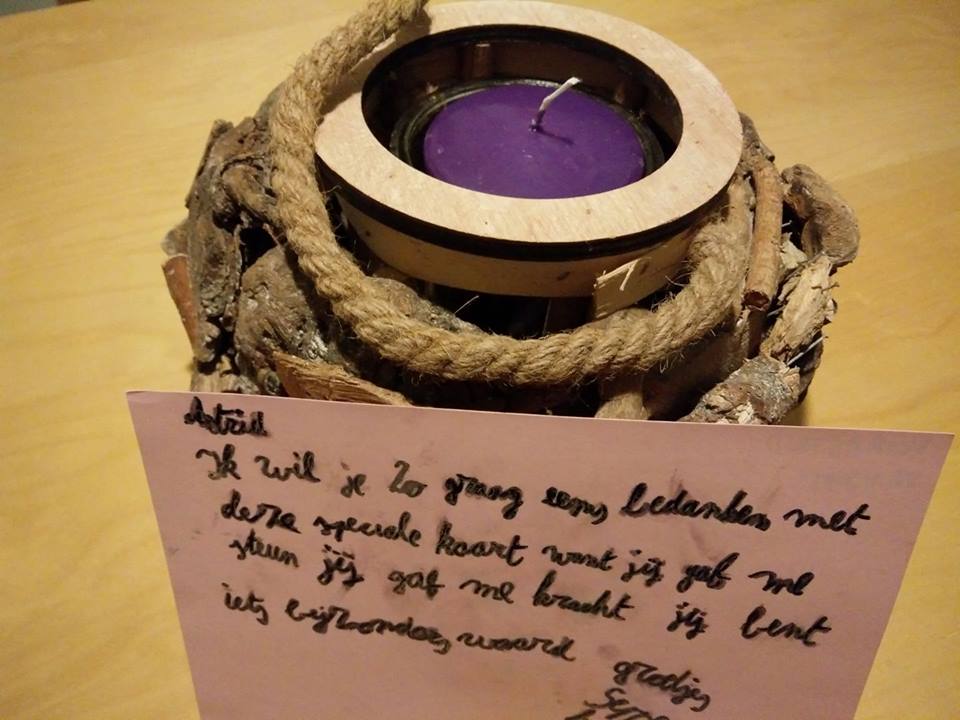 Astrid
Ik wil je zo graag eens bedanken met
deze speciale kaart want jij gaf me
steun jij gaf me kracht jij bent
iets bijzonders waard
groetjes